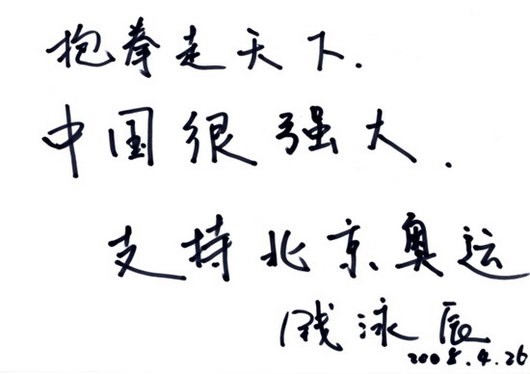 抱拳走天下.
中国很强大.
支持北京奥运
钱泳辰
2008.4.26